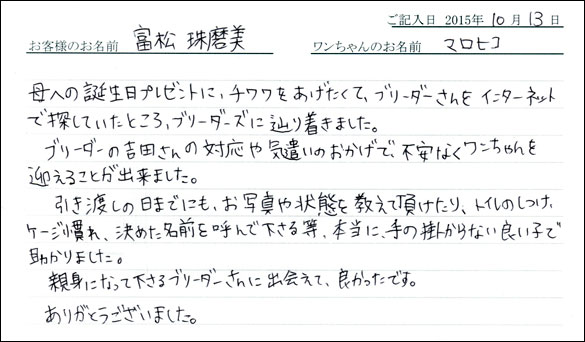 ご記入日 2015年 10月 13日
お客様のお名前 富松 珠磨美 ワンちゃんのお名前 マロヒコ
母への誕生日プレゼントに、チワワをあげたくて、ブリーダーさんを インターネット
で探していたところ、ブリーダーズに辿り着きました。
ブリーダーの吉田さんの対応や気遣いのおかげで、不安なくワンちゃんを
迎えることが出来ました。
引き渡しの日までにも、お写真や状態を教えて頂けたり、トイレのしつけ、
ケージ慣れ、決めた名前を呼んで下さる等、本当に、手の掛からない良い子で
助かりました。
親身になって下さるブリーダーさんに出会えて、良かったです。
ありがとうございました。